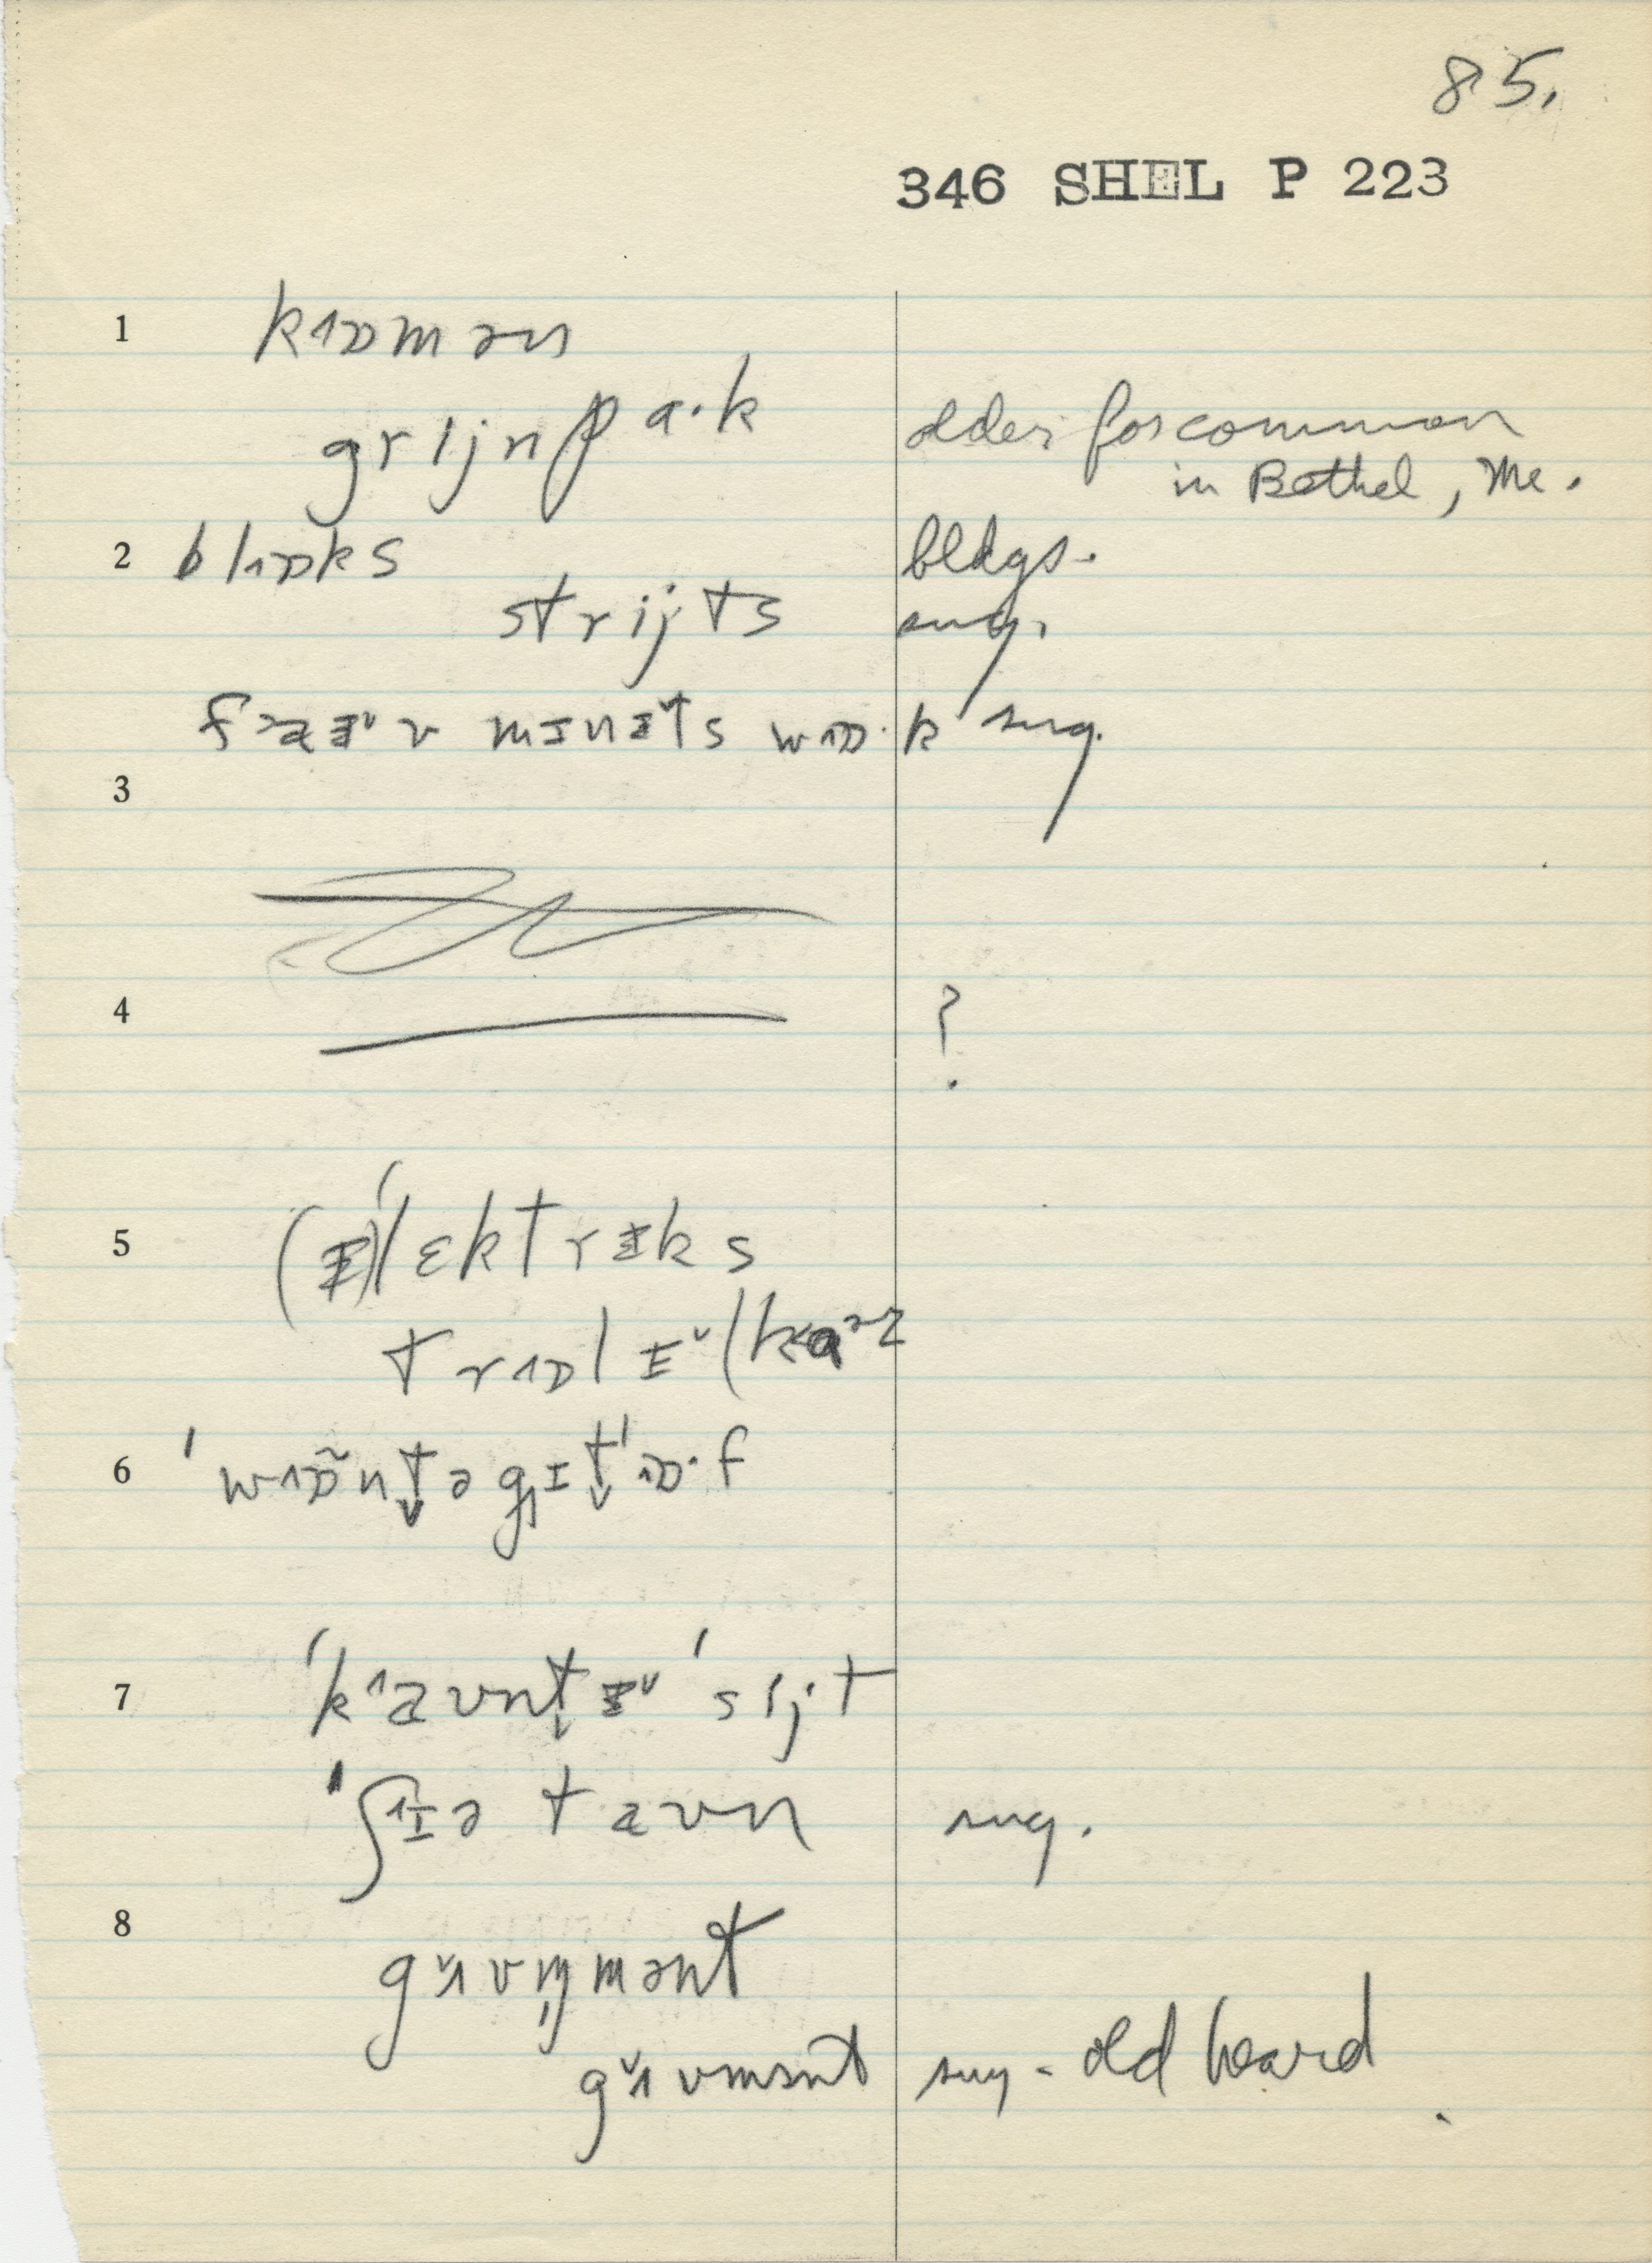 85.
346 SHEL P 223
1 kɒmən
grijnpa·k older for common
in Bethel, Me.
2 blɒks bldgs.
strijts sug.
mɪnɨts wɒ·k sug.
3
4 ?
5 (ɨ)ˈlɛktrɨks
trɒlɨ
6 ˈwɒ̃ntə gɪtˈɒ·f
7 ˈkaʊntɨˈsijt
ˈʃɨə taʊn sug.
8 gʌvm̩mənt
gʌvmənt sug - old heard